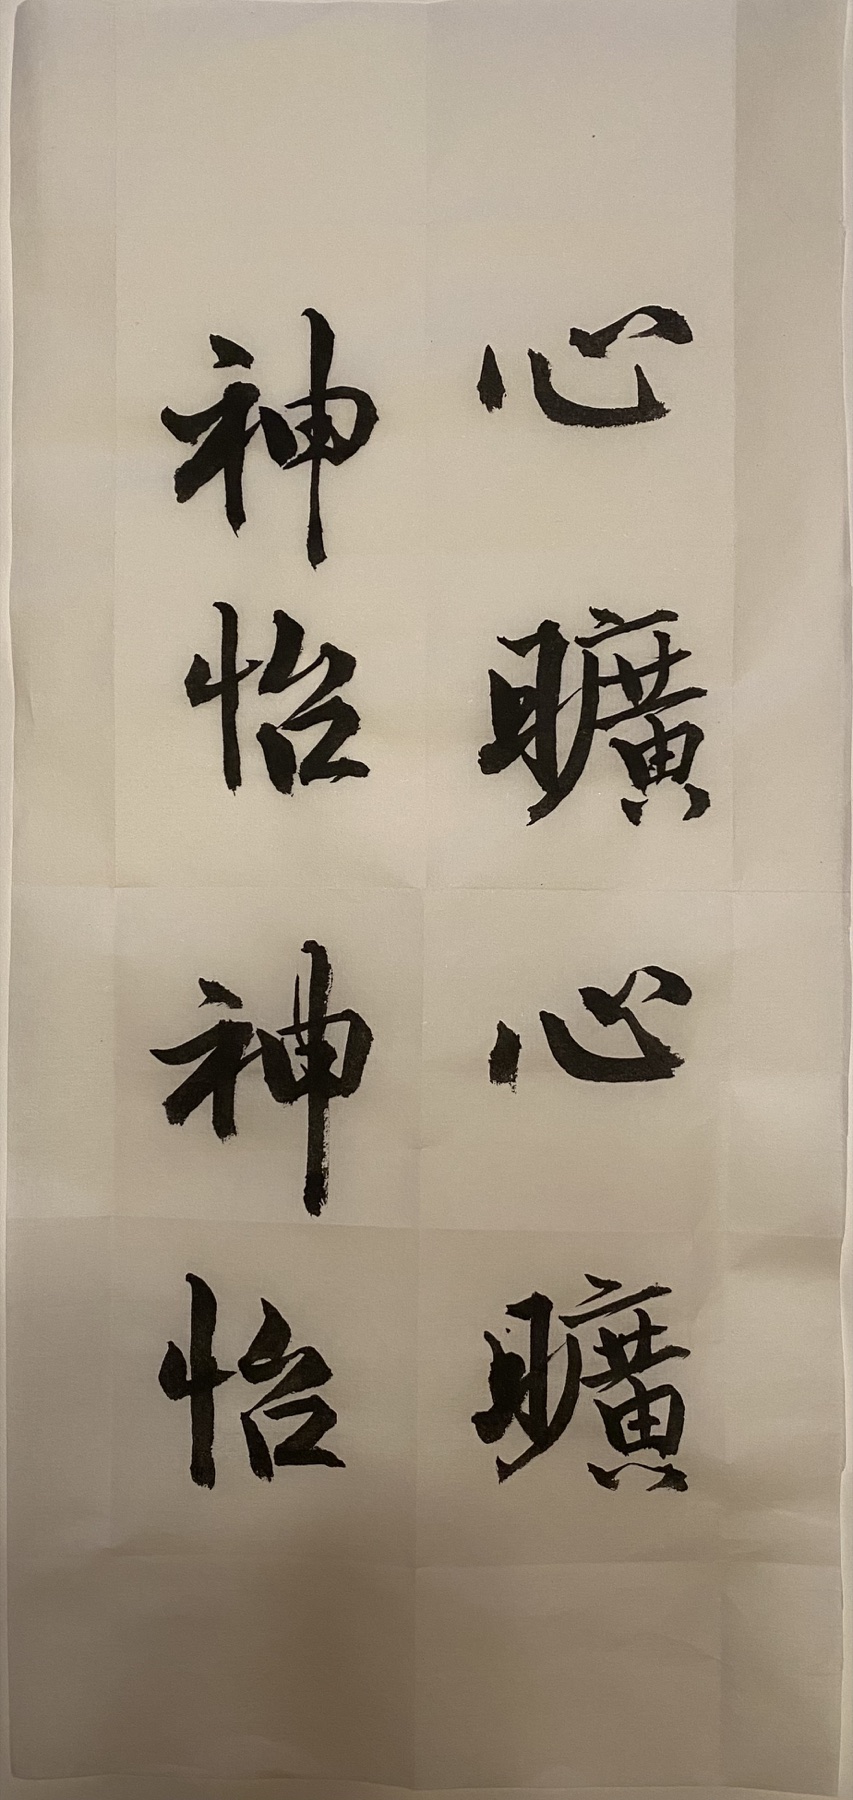 心曠心曠
神怡神怡